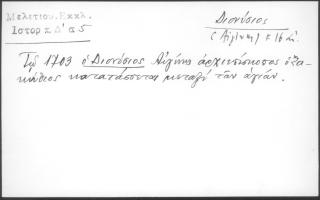 Μελετιου.Εκκλ.
Ιστορ τ Δ' σ 5
Διονύσιος
(Αιγίνης) † 16 αι.
Τῷ 1703 ὁ Διονύσιος Αἰγίνης ἀρχιεπίσκοπος ὁ Ζα-
κύνθιος κατατάσσεται μεταξὺ τῶν ἁγίων.